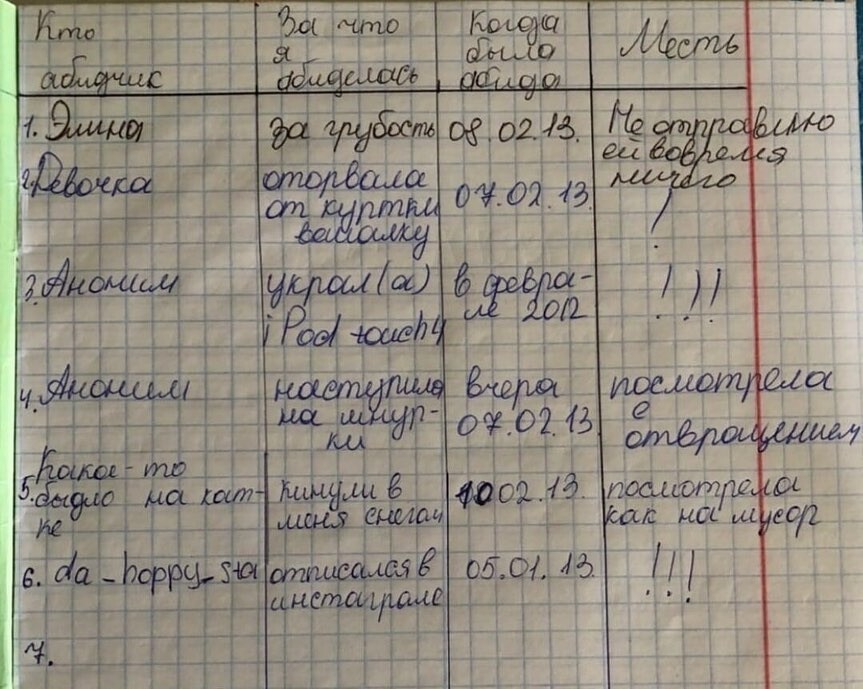 Кто абидчик
За что я абиделась
Когда была абида
Месть
1. Элина
за грубость
08.02.13.
Не отправляю ей вовремя ничего
2. Девочка
оторвала от куртки вашалку
07.02.13.
!
3. Аноним
украл(а) iPod touch4
в феврале 2012
!!!
4. Аноним
наступила на шнурки
вчера 07.02.13.
посмотрела с отвращением
5. Какое-то быдло на катке
кинули в меня снегом
10 02.13.
посмотрела как на мусор
6. da_hoppy_sta
отписался в инстаграме
05.01.13.
!!!
7.